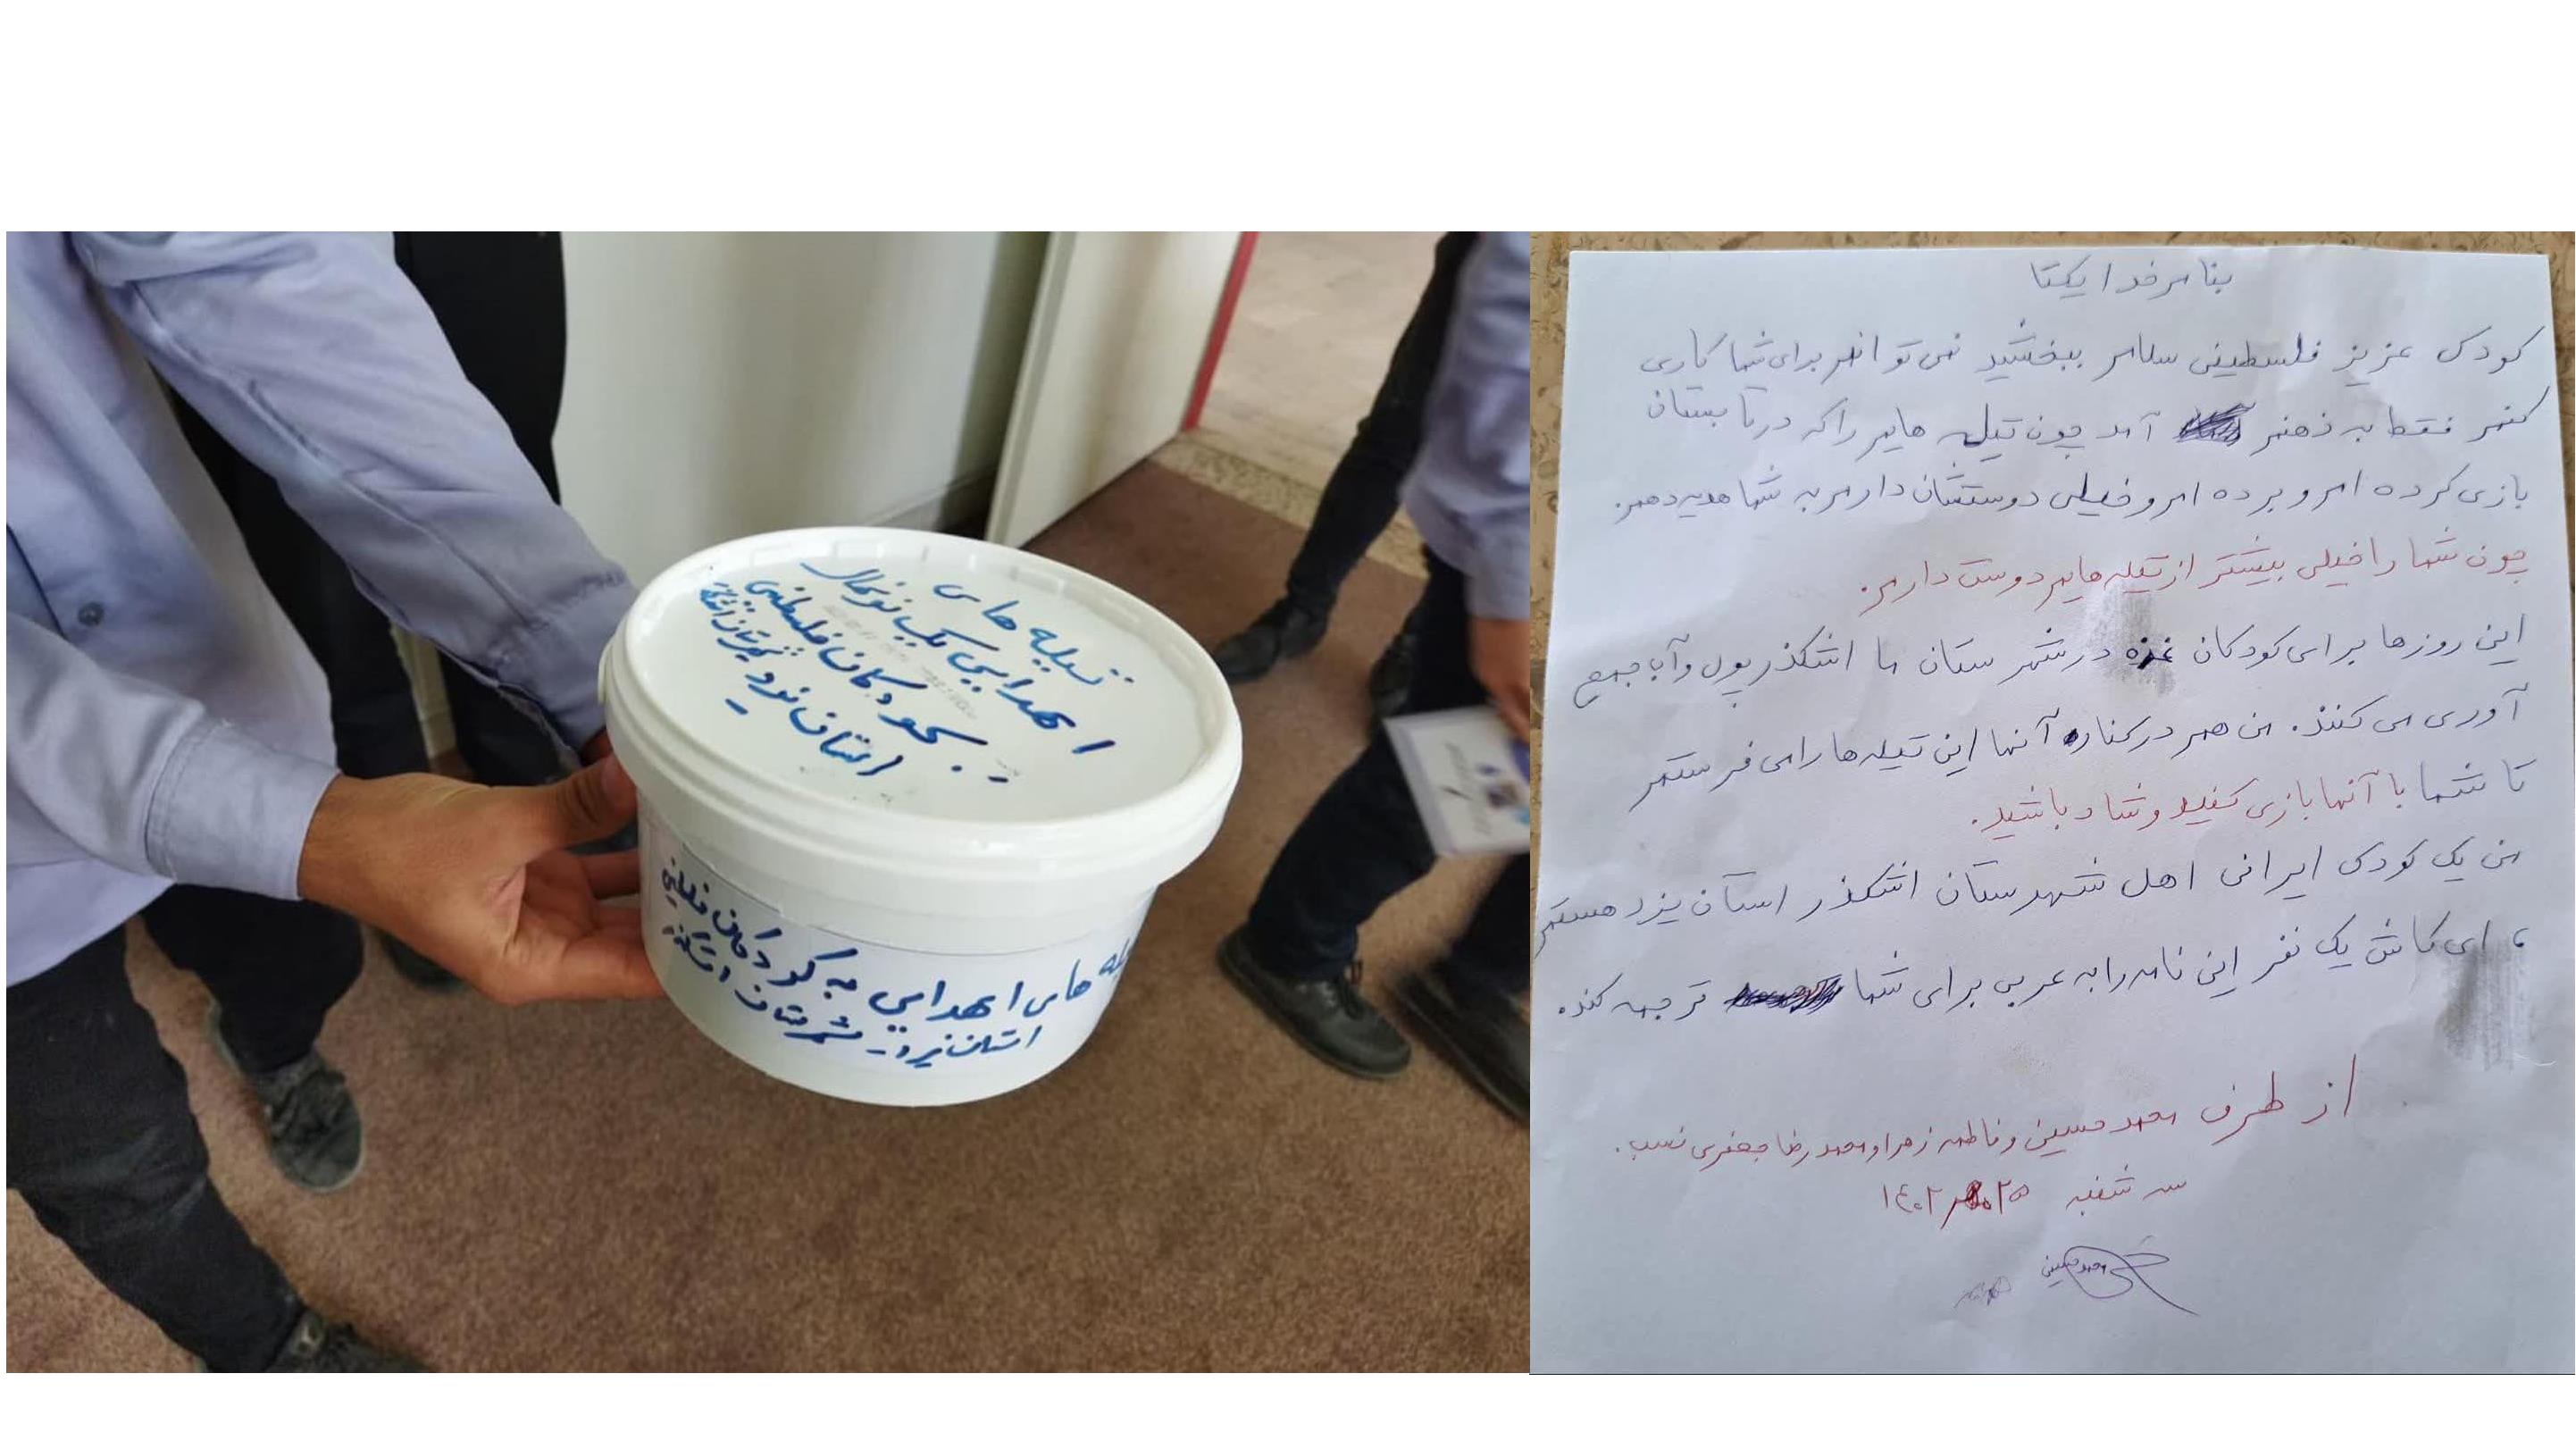 تیله های
اهدایی یک نونهال
به کودکان فلسطینی
استان یزد شهرستان اشکذر
تیله های اهدایی به کودکان فلسطینی
استان یزد - شهرستان اشکذر
بنام خدا یکتا
کودک عزیز فلسطینی سلام ببخشید نمی توانم برای شما کاری
کنم فقط به ذهنم آمد چون تیله هایم را که در تابستان
بازی کرده ام و برده ام و خیلی دوستشان دارم به شما هدیه دهم.
چون شما را خیلی بیشتر از تیله هایم دوست دارم.
این روزها برای کودکان غزه در شهرستان ما اشکذر پول و آب جمع
آوری می کنند. من هم در کنار آنها این تیله ها را می فرستم
تا شما با آنها بازی کنید و شاد باشید.
من یک کودک ایرانی اهل شهرستان اشکذر استان یزد هستم
، ای کاش یک نفر این نامه را به عربی برای شما ترجمه کند.
از طرف محمد حسین و فاطمه زهرا و محمد رضا جعفری نسب.
سه شنبه ۲۵ مهر ۱۴۰۲
محمد حسین